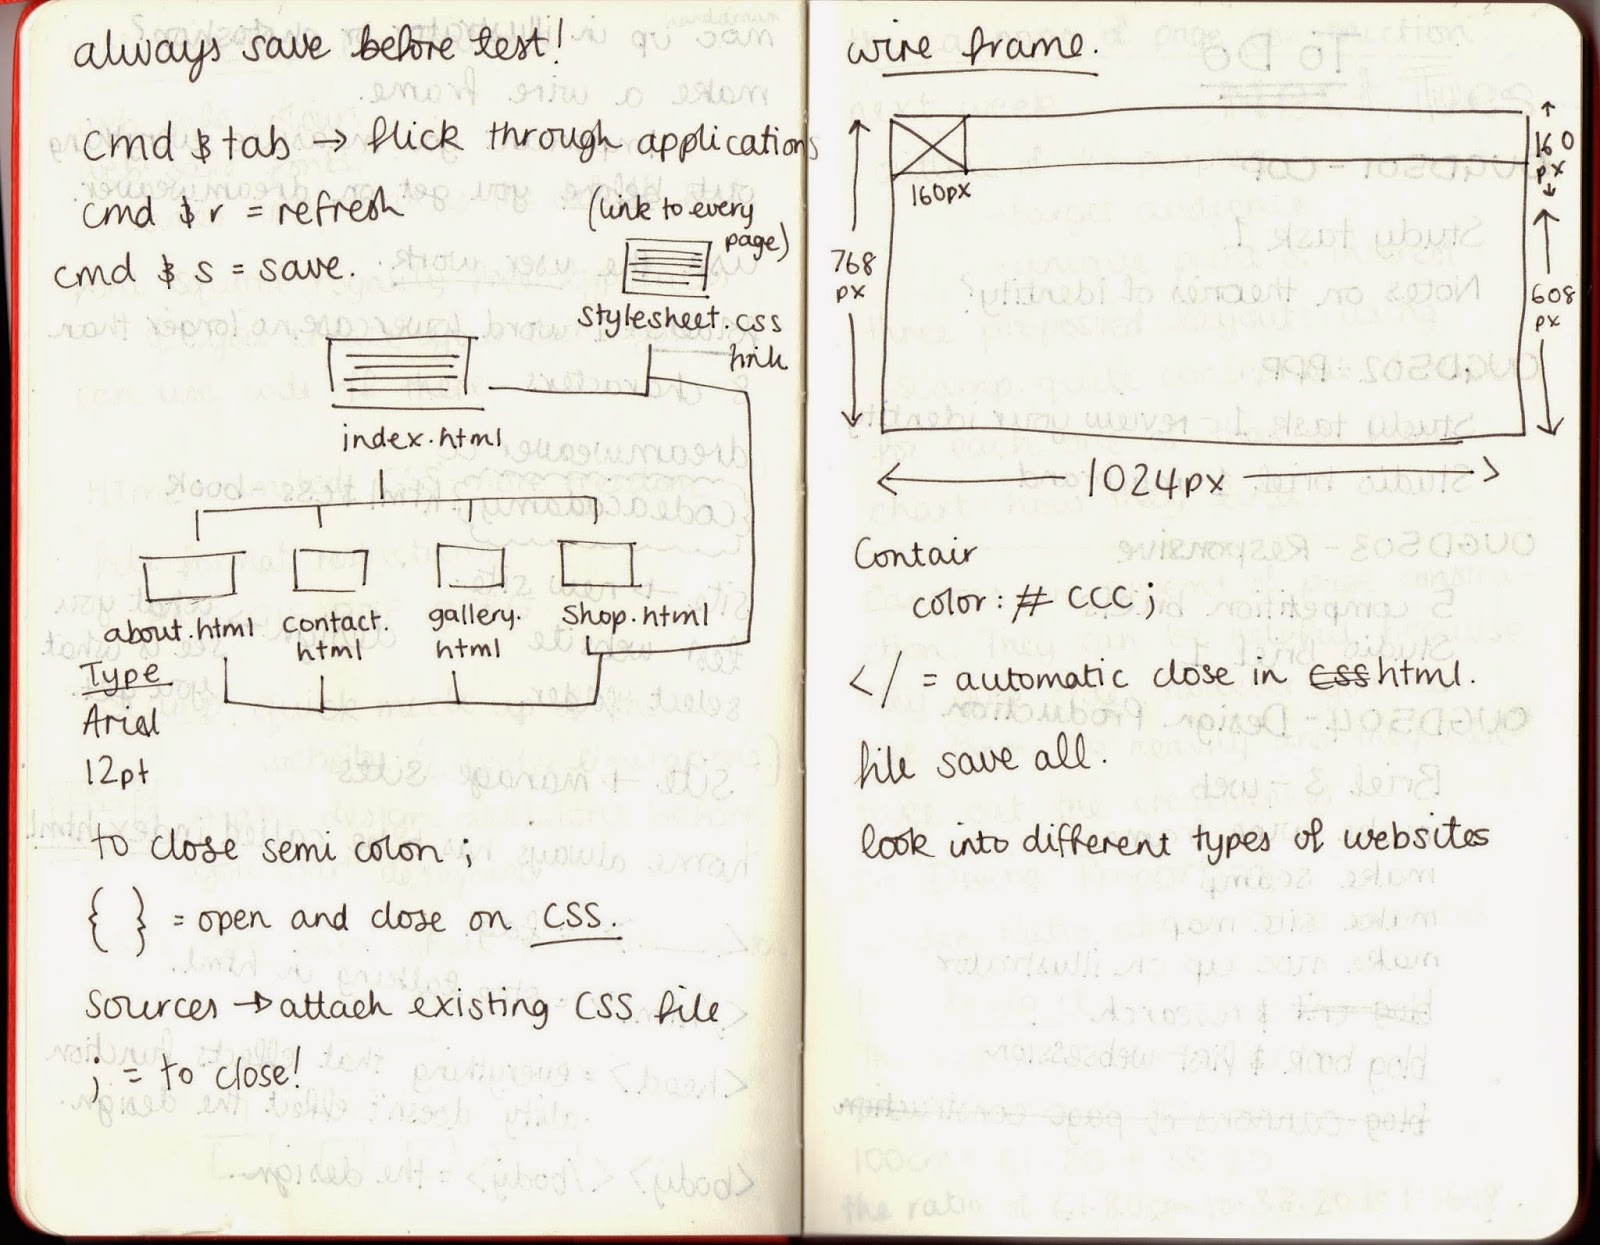 always save before test!
cmd & tab → flick through applications
cmd & r = refresh
cmd & s = save.
(link to every
page)
stylesheet.css
link
index.html
about.html
contact.
html
gallery.
html
shop.html
Type
Arial
12pt
to close semi colon ;
{ } = open and close on CSS.
sources → attach existing CSS file
; = to close!
wire frame.
160
px
160px
768
px
608
px
1024px
Contair
color: # CCC ;
</ = automatic close in CSS html.
file save all.
look into different types of websites